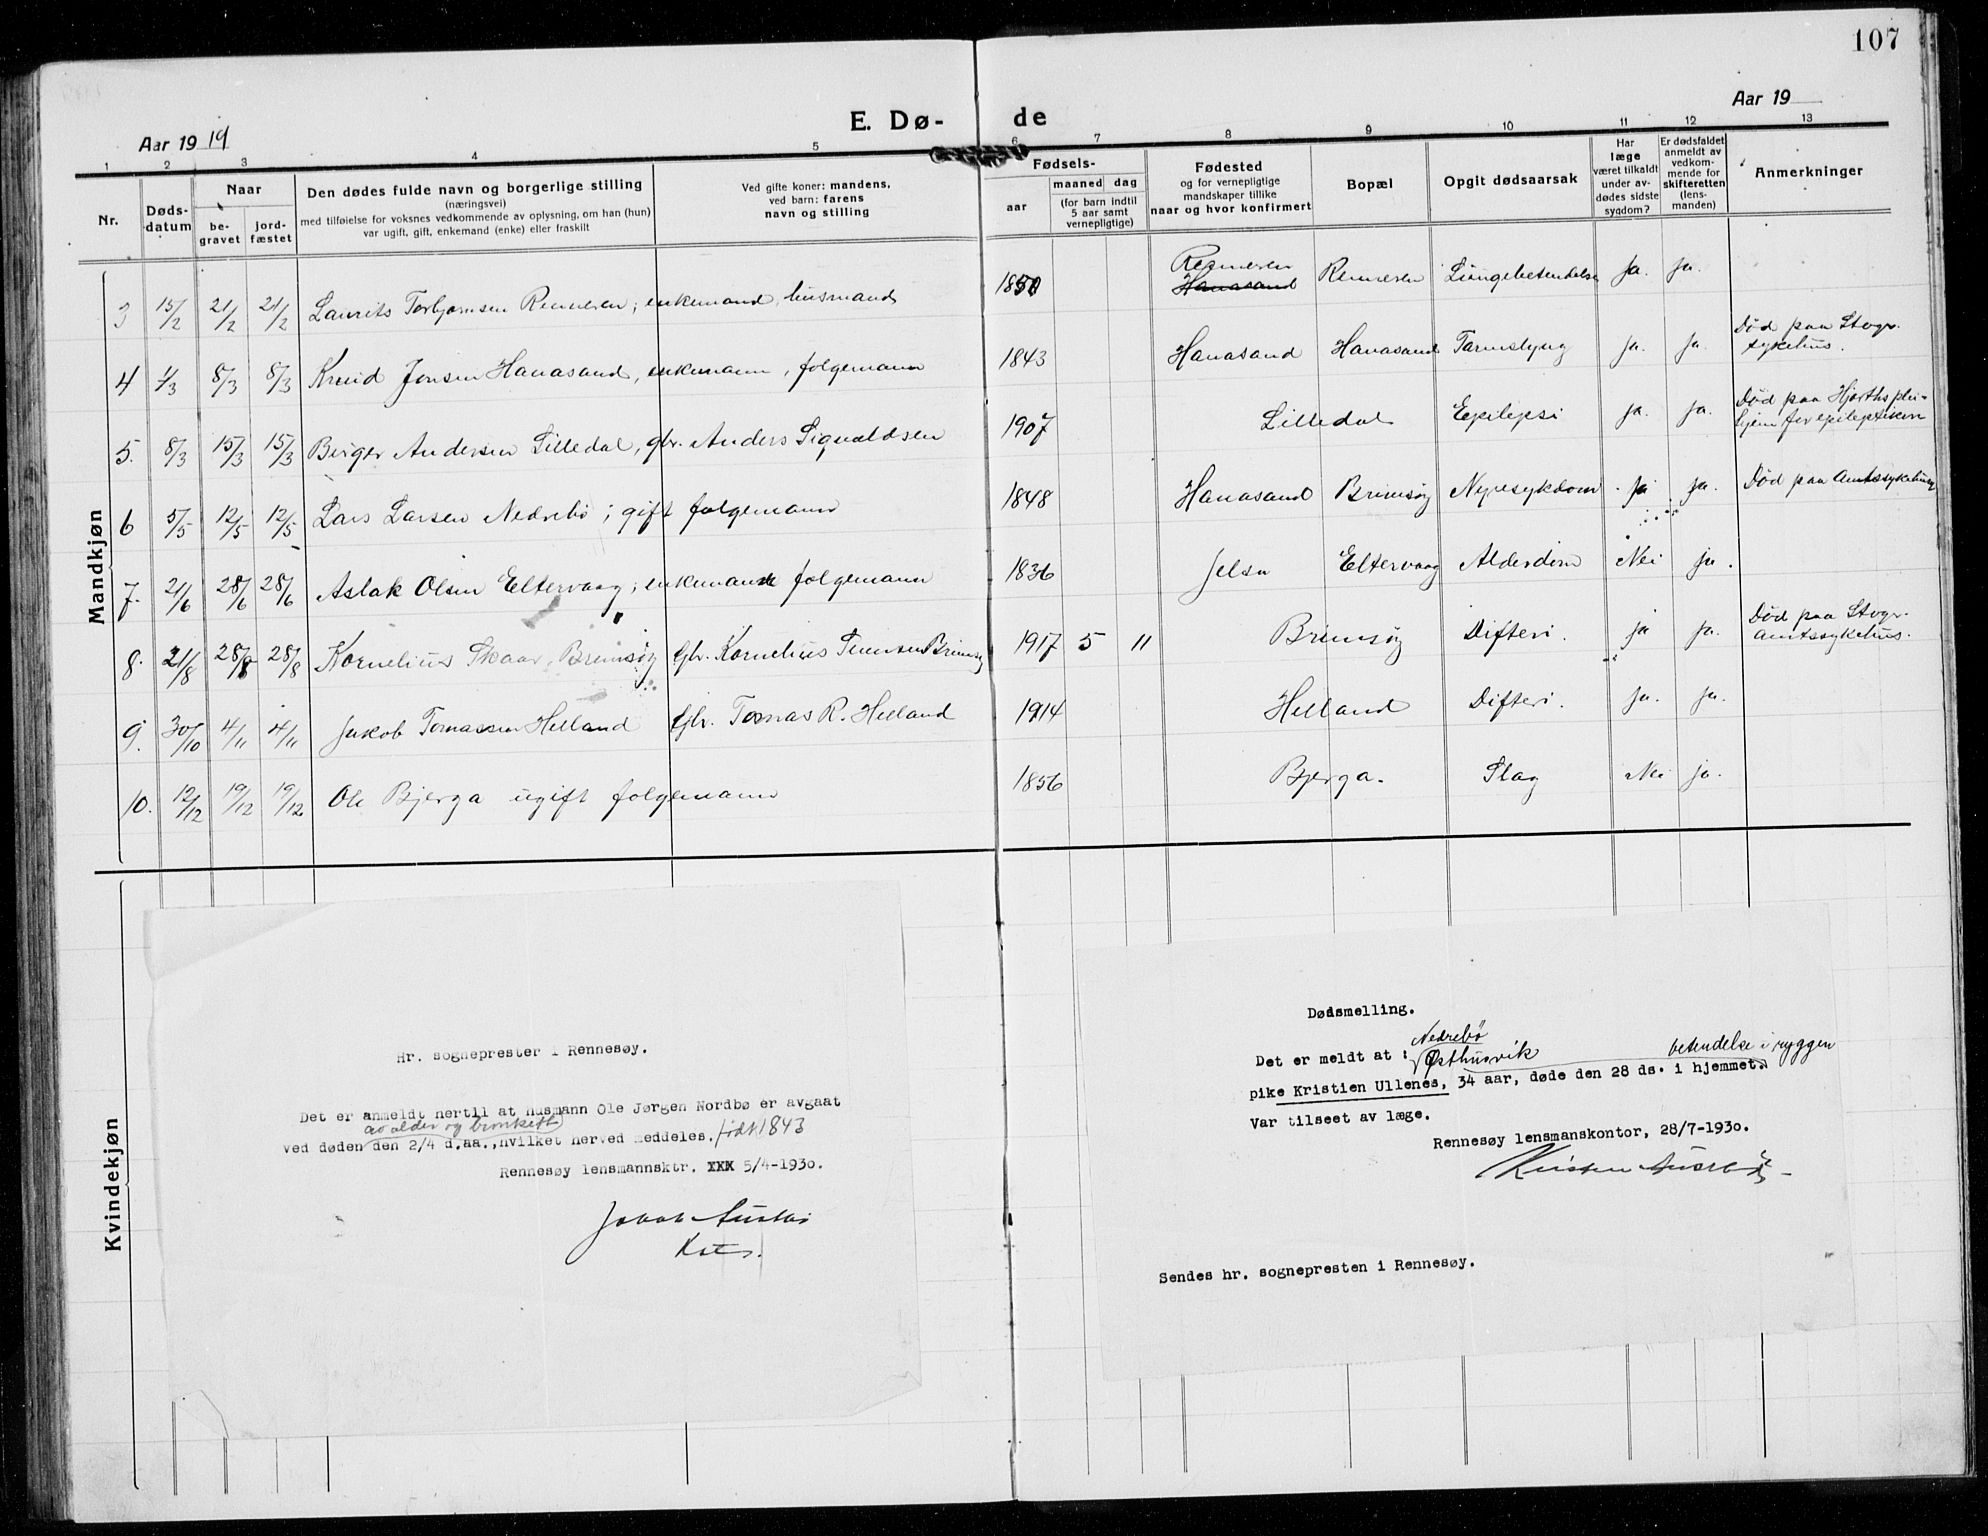 107
E. Dø- de
Aar 1919
Aar 19
1 2 3 4 5 6 7 8 9 10 11 12 13
Nr.
Døds-
datum
Naar
be-
gravet
jord-
fæstet
Den dødes fulde navn og borgerlige stilling
(næringsvei)
med tilføielse for voksnes vedkommende av oplysning, om han (hun)
var ugift, gift, enkemand (enke) eller fraskilt
Ved gifte koner: mandens,
ved barn: farens
navn og stilling
Fødsels-
aar
maaned dag
(for barn indtil
5 aar samt
vernepligtige)
Fødested
og for vernepligtige
mandskaper tillike
naar og hvor konfirmert
Bopæl
Opgit dødsaarsak
Har
læge
været tilkaldt
under av-
dødes sidste
sygdom?
Er dødsfaldet
anmeldt av
vedkom-
mende for
skifteretten
(lens-
manden)
Anmerkninger
Mandkjøn
3 15/2 21/2 21/2 Laurits Torbjørnsen Renneren; enkemand, husmand 1850 Renneren Hanasand Renneren Lungebetendelse Ja. Ja.
4 1/3 8/3 8/3 Knud Jonsen Hanasand, enkemann, folgemann 1843 Hanasand Hanasand Tarmslyng Ja. Ja. Død paa Stvgr. sykehus.
5. 8/3 15/3 15/3 Birger Andersen Lilledal, gbr. Anders Sigvaldsen 1907 Lilledal Epilepsi ja. ja. Død paa Hjorths plei- hjem for epileptikere
6 5/5 12/5 12/5 Lars Larsen Nedrebö; gift folgemann 1848 Hanasand Brimsöy Nyresykdom ja ja. Død paa Amtssykehuset
7. 21/6 28/6 28/6 Aslak Olsen Eltervaag; enkemand folgemann 1836 Jelsa Eltervaag Alderdom Nei ja.
8. 21/8 28/8 28/8 Kornelius Skaar, Brimsöy Gbr. Kornelius Brimsöy 1917 5 11 Brimsöy Difteri. ja ja. Død paa Stvgr. Amtssykehus.
9. 30/10 4/11 4/11 Jakob Tomassen Helland Gbr. Tomas R. Helland 1914 Helland Difteri. ja. ja.
10. 12/12 19/12 19/12 Ole Bjerga ugift folgemann 1856 Bjerga. Slag Nei ja.
Kvindekjøn
Hr. sogneprester i Rennesøy.
Det er anmeldt hertil at husmann Ole Jørgen Nordbø er avgaat
av alder og bronkitt
ved døden den 2/4 d.aa., hvilket herved meddeles. födt 1843
Rennesøy lensmannsktr. XXX 5/4-1930.
Jakob
Dødsmelling.
Nedrebö
Det er meldt at : Østhusvik betendelse i ryggen
pike Kristien Ullenes, 34 aar, døde den 28 ds. i hjemmet.
Var tilseet av læge.
Rennesøy lensmanskontor, 28/7-1930.
Sendes hr. sognepresten i Rennesøy.